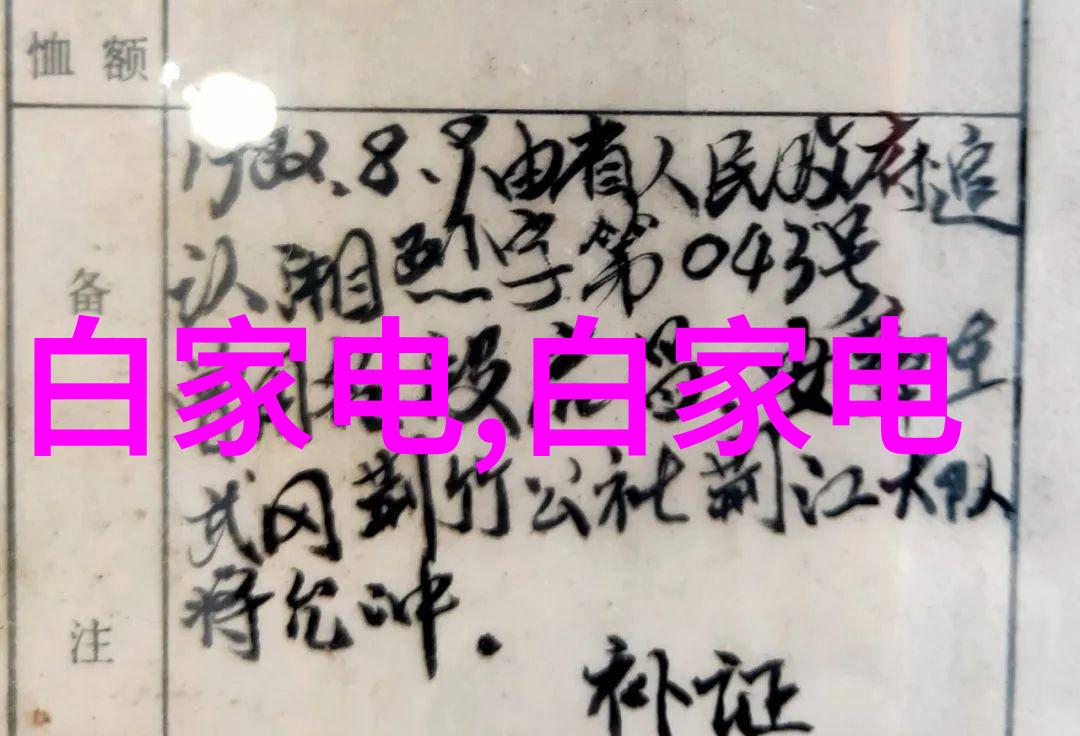 恤 额
备
注
1982.8.9由省人民政府追
认湘烈字第043号
白家电,白家电
武冈荆竹公社荆江大队
蒋允冲.
补证